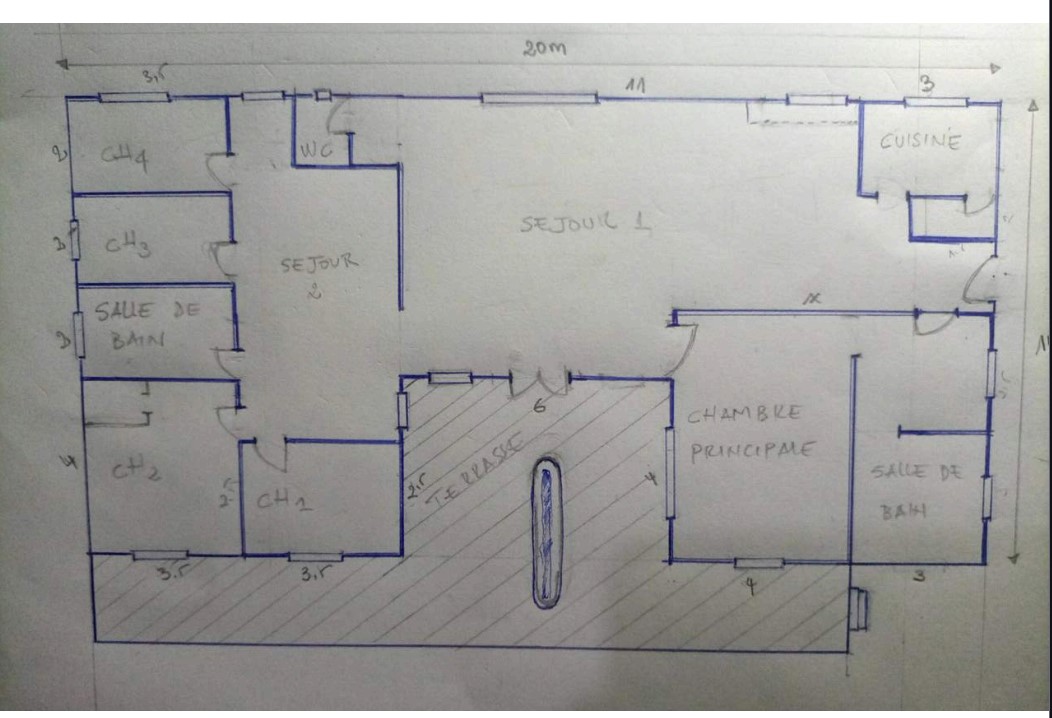 20m
3,5
11
3
2
CH4
WC
CUISINE
2
CH3
SEJOUR
2
SEJOUR 1
2
SALLE DE
BAIN
x
4
CH2
2.5
CH1
2.5
TERRASSE
6
4
CHAMBRE
PRINCIPALE
SALLE DE
BAIN
3.5
3,5
4
3